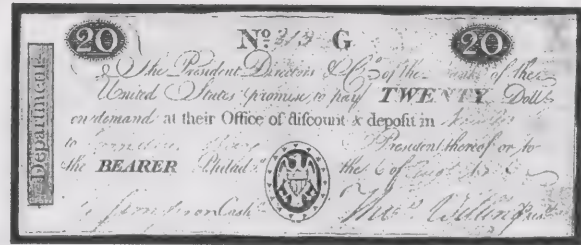 20 Nº 313 G 20
Department
The President Directors & Cº of the Bank of the
United States promise to pay TWENTY Dollˢ
on demand at their Office of discount & deposit in
to President thereof or to
the BEARER Philadª the 6 of Augt
Cashʳ Thoˢ Willing Presᵗ